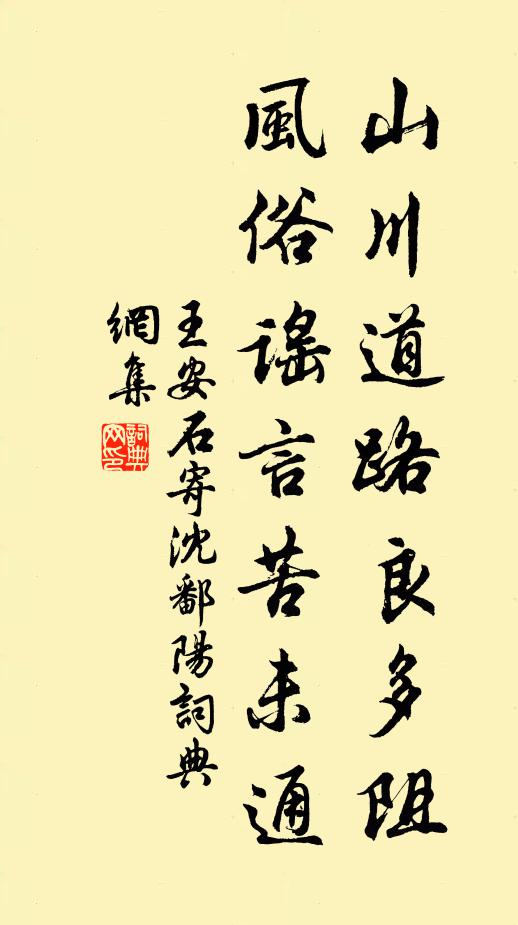 山川道路良多阻
風俗謠言苦未通
王安石寄沈鄱陽詞典
網集
詞典
网印